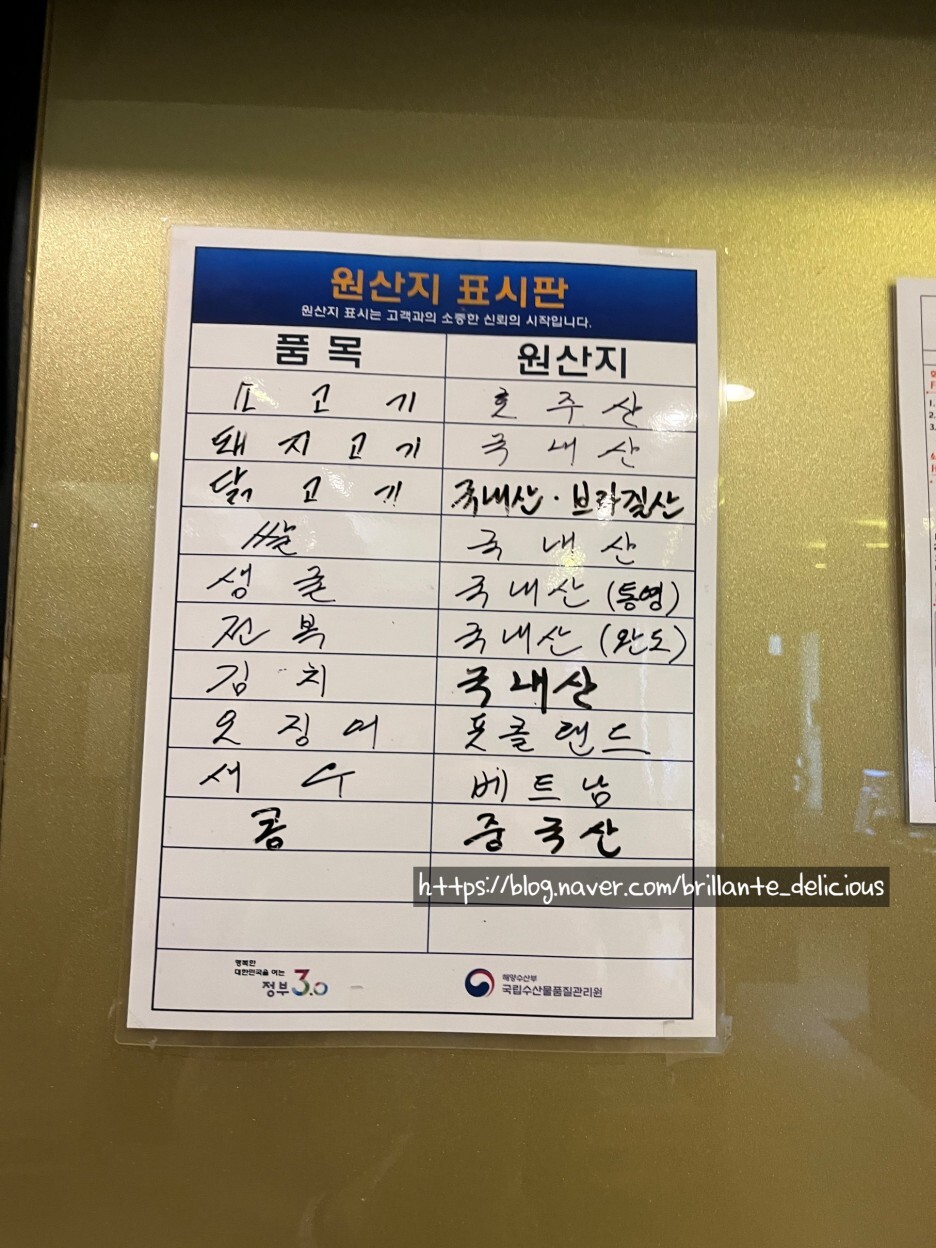 원산지 표시판
원산지 표시는 고객과의 소중한 신뢰의 시작입니다.
품목 원산지
소고기 호주산
돼지고기 국내산
닭고기 국내산·브라질산
쌀 국내산
생굴 국내산 (통영)
전복 국내산 (완도)
김치 국내산
오징어 포클랜드
새우 베트남
콩 중국산
https://blog.naver.com/brillante_delicious
행복한
대한민국을 여는
정부3.0
해양수산부
국립수산물품질관리원
1.
2.
3.